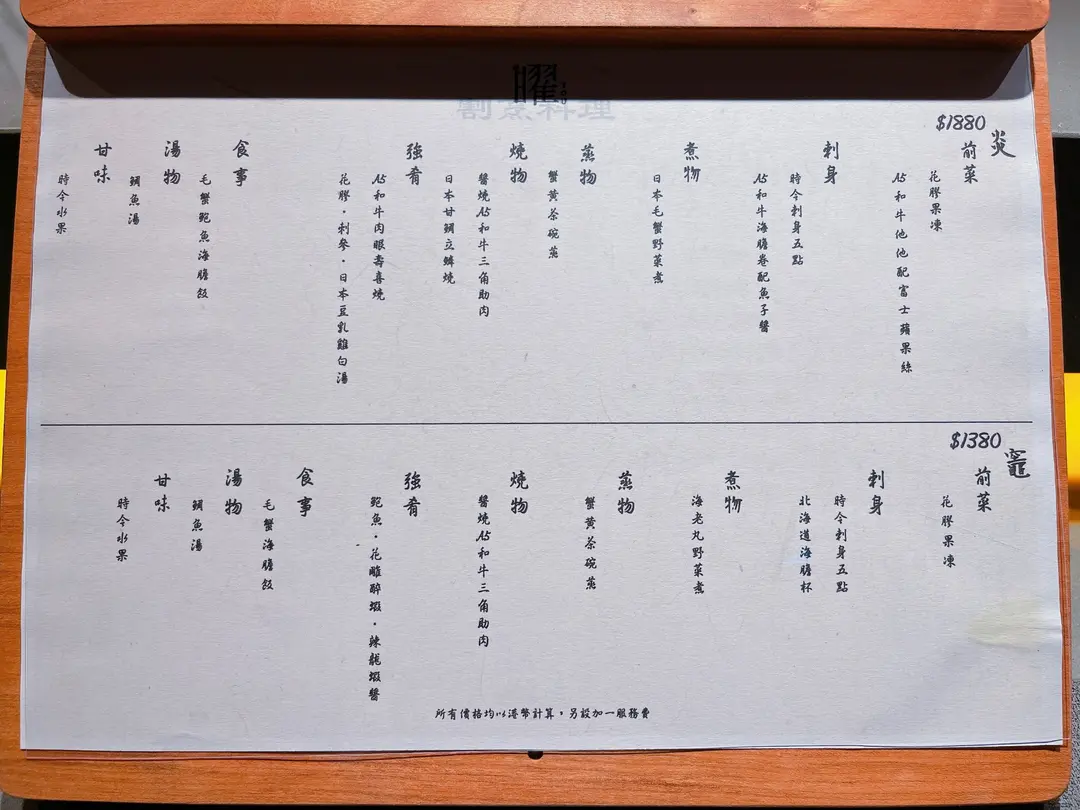 曜
YOU
割烹料理
炎
$1880
前菜
花膠果凍
A5和牛他他配富士蘋果絲
刺身
時令刺身五點
A5和牛海膽卷配魚子醬
煮物
日本毛蟹野菜煮
蒸物
蟹黄茶碗蒸
燒物
醬燒A5和牛三角肋肉
日本甘鯛立鱗燒
強肴
A5和牛肉眼壽喜燒
花膠・刺參・日本豆乳雞白湯
食事
毛蟹鮑魚海膽飯
湯物
鯛魚湯
甘味
時令水果
竈
$1380
前菜
花膠果凍
刺身
時令刺身五點
北海道海膽杯
煮物
海老丸野菜煮
蒸物
蟹黄茶碗蒸
燒物
醬燒A5和牛三角肋肉
強肴
鮑魚・花雕醉蝦・辣龍蝦醬
食事
毛蟹海膽飯
湯物
鯛魚湯
甘味
時令水果
所有價格均以港幣計算，另設加一服務費